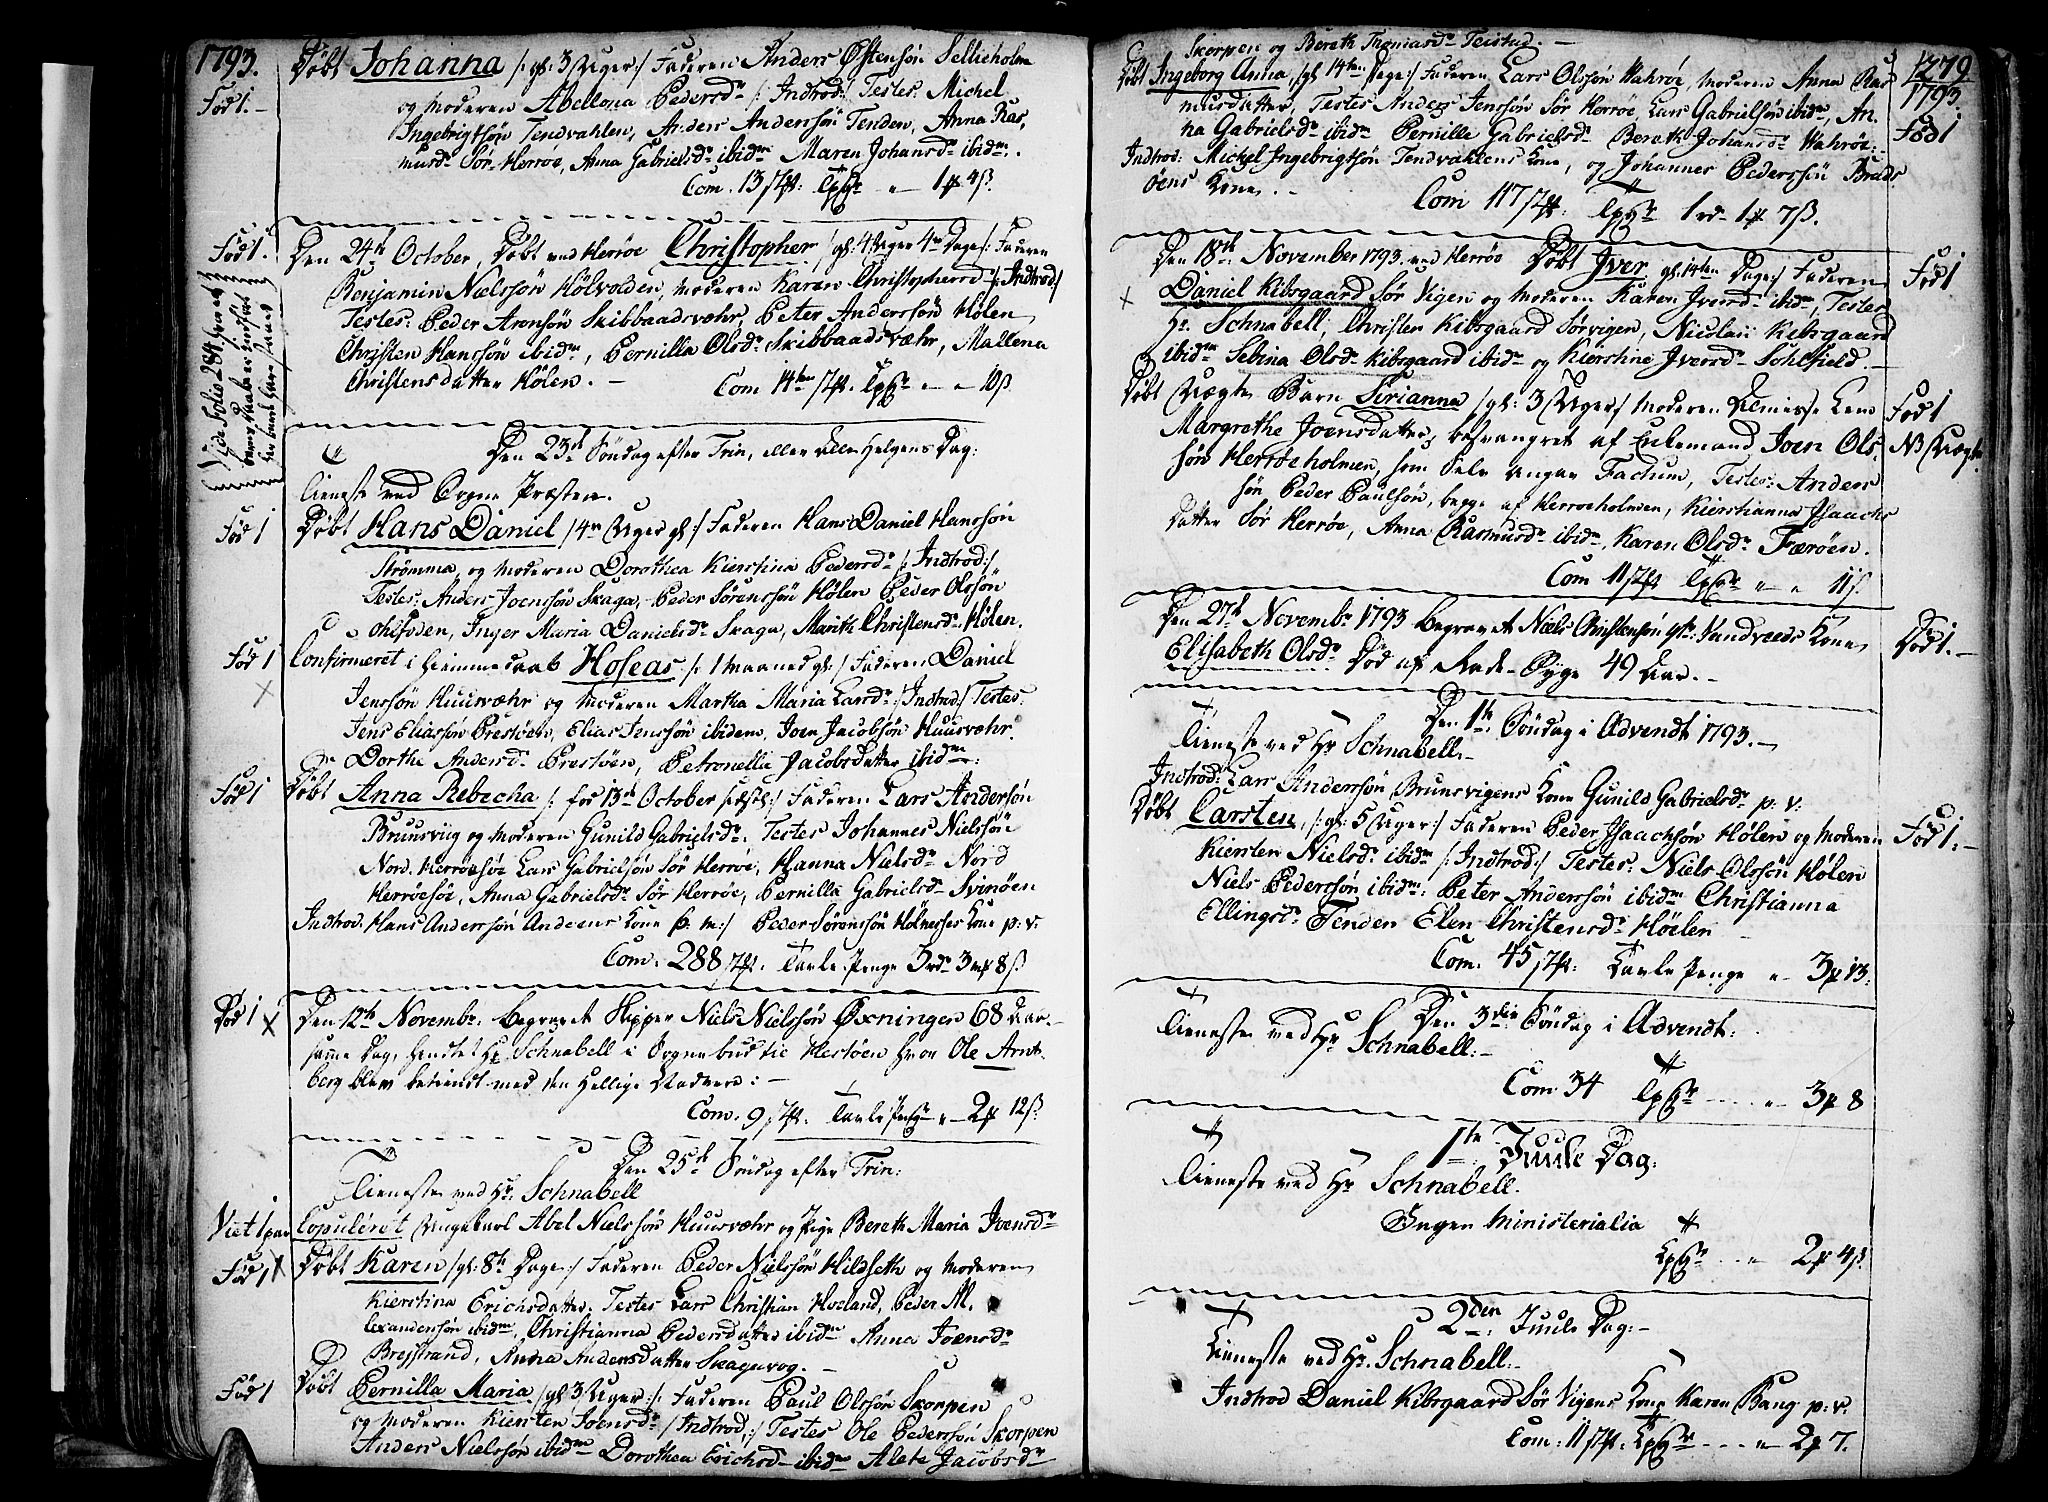 1793.
Døbt Johanna /: gl: 3 Uger :/ Faderen Anders Østensøn Sellieholm
Fød 1.-
og Moderen Abellona Pedersdr /: Indtrod :/ Testes: Michel
Ingebrigtsøn Tendvahlen, Anders Andersøn Tenden, Anna Ras,
musdr Sør-Herrøe, Anna Gabrielsdr ibidm Maren Johansdr ibidm.
Com. 13 1 4 ß.
Fød 1.
Den 24de October, Døbt ved Herrøe Christopher /: gl: 4 Uger 4re Dage :/ Faderen
Benjamin Nielssøn Hølvolden, Moderen Karen Christophersd /: Indtrod :/
Testes: Peder Aronsøn Skibbaadsvæhr, Peter Anderssøn Hølen
Christen Hanssøn ibidm, Pernilla Olsdr Skibbaadsvæhr, Mallena
Christensdatter Hølen.-
Com 14ten 10 ß
Vide Folio 284
Den 23de Søndag efter Trin, eller Alle Helgens Dag:
Tieneste ved Sogne Præsten.
Fød 1
Døbt Hans Daniel /: 4re Uger gl :/ Faderen Hans Daniel Hanssøn
Strømma, og Moderen Dorothea Kierstina Pedersdr /: Indtrod :/
Testes: Anders Joenssøn Skaga, Peder Sørenssøn Hølen Peder Olssøn
Inger Maria Danielsdr Skaga, Marith Christensdr Hølen.
Fød 1
Confirmeret i Hiemmedaab Hoseas /: 1 Maaned gl :/ Faderen Daniel
Jenssøn Huusvæhr og Moderen Martha Maria Larsdr /: Indtrod :/ Testes:
Jens Eliassøn Prestøen, Elias Jenssøn ibidem, Joen Jacobsøn Huusvæhr.
Dorthe Andersdr Prestøen, Petronellia Jacobsdatter ibidm:
Fød 1
Døbt Anna Rebecha /: fød 13de October :/ Faderen Lars Andersøn
Bruunsviig og Moderen Gunild Gabrielsdr. Testes Johannes Nielssøn
Nord Herrøesøe Lars Gabrielsøn Sør Herrøe, Hanna Nielsdr Nord
Herrøesøe, Anna Gabrielsdr Sør Herrøe, Pernilla Gabrielsdr Svinøen
Indtrod: Hans Anderssøn Andeens Kone p: m :/ Peder Sørenssøn Hølnesses Kone p: v:
Com. 288 Tavle Penge 3 rdr 3 mp 8 ß
Død 1
Den 12te Novembr: Begravet Skipper Niels Nielssøn Øxningen 68 Aar.-
samme Dag, hendtet Hr Schnabell i Sognebud til Hestøen hvor Ole Arnt-
berg blev betient med den Hellige Nadvere:-
Com. 9 Tavle Penge 2 12 ß.
Den 25de Søndag efter Trin:
Tieneste ved Hr: Schnabell
Viet 1 par
Copuleret Ungekarl Abel Nielssøn Huusvæhr og Pige Bereth Maria Joensdr
Fød 1
Døbt Karen /: gl: 8te Dage :/ Faderen Peder Nielssøn Hildseth og Moderen
Kierstina Erichsdatter. Testes Lars Christian Hoeland, Peder Al.
exandersøn ibidm, Christianna Pedersdatter ibidm Anna Joensdr
Brejstrand, Anna Andersdatter Skagavog.-
Fød 1
Døbt Pernilla Maria /: gl 3 Uger :/ Faderen Paul Olssøn Skorpen
og Moderen Kiersten Joensdr /: Indtrod :/ Testes Ole Pederssøn Skorpen
Anders Nielssøn ibidm Dorothea Erichsd ibidm Alete Jacobsdr
Skorpen og Bereth Thomasdr Teistad.-
279
1793.
Døbt Ingeborg Anna, /: gl 14ten Dage :/ Faderen Lars Olssøn Wahrøe, Moderen Anna Ras
musdatter, Testes Anders Jenssøn Sør Herrøe Lars Gabrielsøn ibidm, An.
Fød 1
na Gabrielsdr ibidm Pernille Gabrielsdr Bereth Johansdr Wahrøe:
Indtrod: Mickel Ingebrigtsøn Tendvahlens Kone, og Johannes Pederssøn Brads
øens Kone.-
Com 117 1 rd 1 7 ß.
Den 18de November 1793 ved Herrøe Døbt Jver gl: 14ten Dage :/ Faderen
Fød 1
Daniel Kibsgaard Sør Vigen og Moderen Karen Jversdr ibidm, Testes
Hr. Schnabell, Christen Kibsgaard Sørvigen, Nicolaii Kibsgaard
ibidm Sebina Olsdr Kibsgaard ibidm og Kierstine Jversdr Sohlfield.-
Døbt Uægte Barn Sirianna /: gl: 3 Uger :/ Moderen
Fød 1
NB Uægte
Margrethe Joensdatter, besvangret af Enkemand Joen Ols,
søn Herrøeholmen, som Selv angav Factum, Testes: Anders
søn Peder Paulsøn, begge af Herroeholmen, Kierstianna Jsaachs
datter Sør Herrøe, Anna Rasmusdr ibidm, Karen Olsdr Færøen.
Com 11 11 ß.
Den 27de Novembr 1793 Begravet Niels Christensøn Sandveeds Kone
Død 1.-
Elisabeth Olsdr Død af 49 Aar.-
Den 1te Søndag i Advendt 1793.-
Tieneste ved Hr Schnabell.-
Indtrod: Lars Anderssøn Brunsvigens Kone Gunild Gabrielsdr p: v:
Døbt Carsten, /: gl: 5 Uger :/ Faderen Peder Jsaachsøn Hølen og Moderen
Fød 1.-
Kiersten Nielsdr ibidm /: Indtrod :/ Testes: Niels Olssøn Hølen
Niels Pederssøn ibidm: Peter Anderssøn ibidm Christianna
Ellingsdr Tenden Elen Christensdr Høelen
Com. 45 Tavle Penge 3 13:
Den 3die Søndag i Advendt:
Tieneste ved Hr Schnabell:-
Com 34 3 8
1te Juule Dag:
Tieneste ved Hr Schnabell.
Ingen Ministerialia
2 4 ß
2den Juule Dag:-
Tieneste ved Hr. Schnabell:-
Indtrod Daniel Kibsgaard Sør Vigens Kone Karen Bang p: v.
Com: 11 2 7.